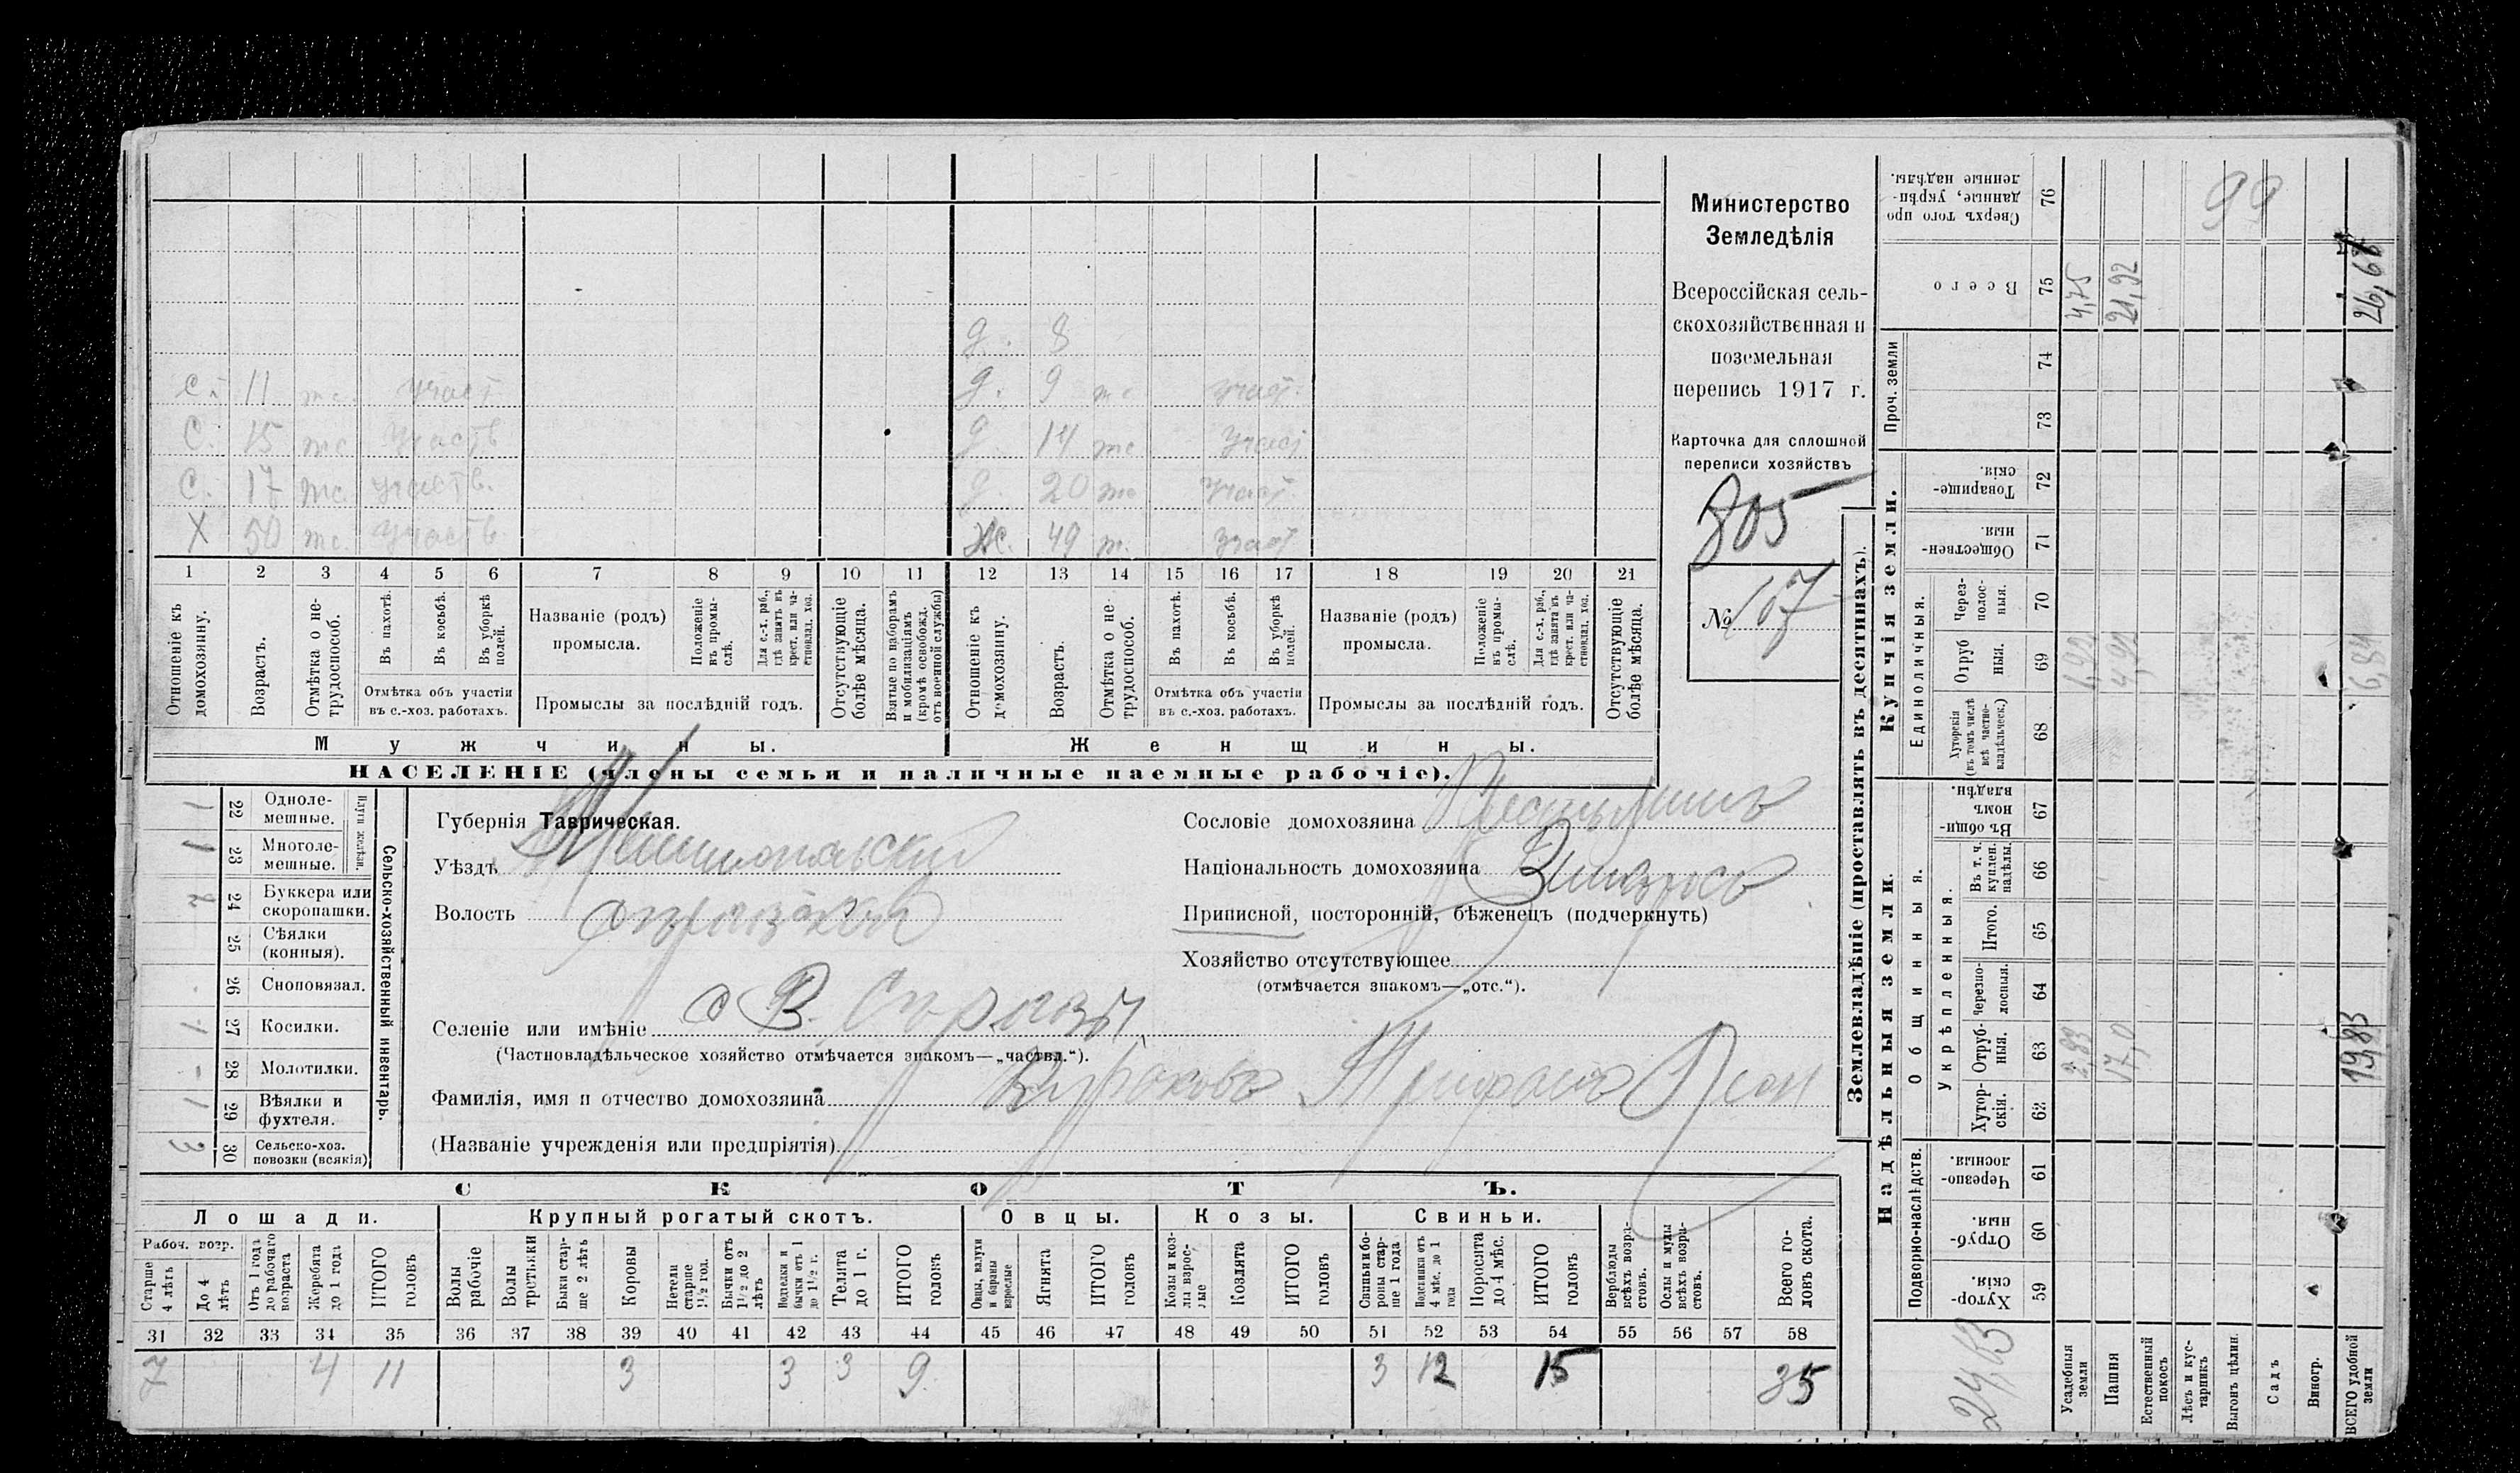 Министерство
Земледѣлія
Всероссійская сель-
скохозяйственная и
поземельная
перепись 1917 г.
Карточка для сплошной
переписи хозяйствъ
805
№ 107
д. 8
с. 11 участ д. 9 участ.
с. 15 участв д. 14 участ
с. 17 участв. д. 20 участ.
Х 50 участв. ж. 49 участ
1 2 3 4 5 6 7 8 9 10 11 12 13 14 15 16 17 18 19 20 21
Отношеніе къ домохозяину.
Возрастъ.
Отмѣтка о не-трудоспособ.
Въ пахотѣ.
Въ косьбѣ.
Въ уборкѣ полей.
Отмѣтка объ участіи въ с.-хоз. работахъ.
Названіе (родъ) промысла.
Положеніе въ промы-слѣ.
Для с.-х. раб., гдѣ занятъ въ крест. или ча-стновлад. хоз.
Промыслы за послѣдній годъ.
Отсутствующіе болѣе мѣсяца.
Взятые по наборамъ и мобилизаціямъ (кромѣ освобожд. отъ военной службы)
Отношеніе къ домохозяину.
Возрастъ.
Отмѣтка о не трудоспособ.
Въ пахотѣ.
Въ косьбѣ.
Въ уборкѣ полей.
Отмѣтка объ участіи въ с.-хоз. работахъ.
Названіе (родъ) промысла.
Положеніе въ промы-слѣ.
Для с.-х. раб., гдѣ занята въ крест. или ча-стновлад. хоз.
Промыслы за послѣдній годъ.
Отсутствующіе болѣе мѣсяца.
Мужчины. Женщины.
НАСЕЛЕНІЕ (члены семьи и наличные наемные рабочіе).
Сельско-хозяйственный инвентарь.
Плуги желѣзн.
22 Одноле-мешные. 1
23 Многоле-мешные. 1
24 Буккера или скоропашки. 2
25 Сѣялки (конныя).
26 Сноповязал.
27 Косилки. 1
28 Молотилки. -
29 Вѣялки и фухтеля. 1
30 Сельско-хоз. повозки (всякія) 3
Губернія Таврическая.
Уѣздъ
Волость
Селеніе или имѣніе с В. Сърогозы
(Частновладѣльческое хозяйство отмѣчается знакомъ—„частвл.“).
Фамилія, имя и отчество домохозяина
(Названіе учрежденія или предпріятія)
Сословіе домохозяина
Національность домохозяина
Приписной, посторонній, бѣженецъ (подчеркнуть)
Хозяйство отсутствующее
(отмѣчается знакомъ—„отс.“).
СКОТЪ.
Лошади. Крупный рогатый скотъ. Овцы. Козы. Свиньи.
Рабоч. возр.
Старше 4 лѣтъ
До 4 лѣтъ
Отъ 1 года до рабочаго возраста
Жеребята до 1 года
ИТОГО головъ
Волы рабочіе
Волы третьяки
Быки стар-ше 2 лѣтъ
Коровы
Нетели старше 1½ год.
Бычки отъ 1½ до 2 лѣтъ
Телята до 1 г.
ИТОГО головъ
Овцы, валухи и бараны взрослые
Ягнята
ИТОГО головъ
Козы и коз-лы взрос-лые
Козлята
ИТОГО головъ
Свиньи и бо-ровы стар-ше 1 года
Поросята до 4 мѣс.
ИТОГО головъ
Верблюды всѣхъ возра-стовъ.
Ослы и мулы всѣхъ возра-стовъ.
Всего го-ловъ скота.
31 32 33 34 35 36 37 38 39 40 41 42 43 44 45 46 47 48 49 50 51 52 53 54 55 56 57 58
7 4 11 3 3 3 9 3 12 15 35
Землевладѣніе (проставлять въ десятинахъ).
Надѣльныя земли. Купчія земли. Проч. земли
Подворно-наслѣдств.
Общинныя.
Укрѣпленныя.
Единоличныя.
Хутор-скія. 59
Отруб-ныя. 60
Черезпо-лосныя. 61
Хутор-скія. 62
Отруб-ныя. 63
черезпо-лосныя. 64
Итого. 65
Въ т. ч. куплен. надѣлы. 66
Въ общи-номъ владѣн. 67
Хуторскія (въ томъ числѣ всѣ частно-владѣльческ.) 68
Отруб ныя. 69
Через-полос-ныя. 70
Обществен-ныя. 71
Товарище-скія. 72
73
74
Всего 75
Сверхъ того про данные, укрѣп-ленные надѣлы. 76
24,13
Усадебныя земли 2,83 1,92 4,75
Пашня 17,0 4,92 21,92
Естественный покосъ
Лѣсъ и кус-тарникъ
Выгонъ цѣлин.
Садъ
Виногр.
ВСЕГО удобной земли 19,83 6,84 26,67
99